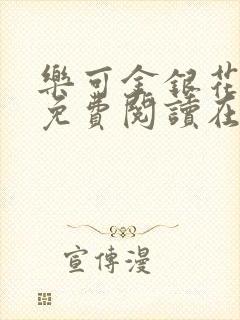 樂可金銀花
免費閱讀在
宣傳漫